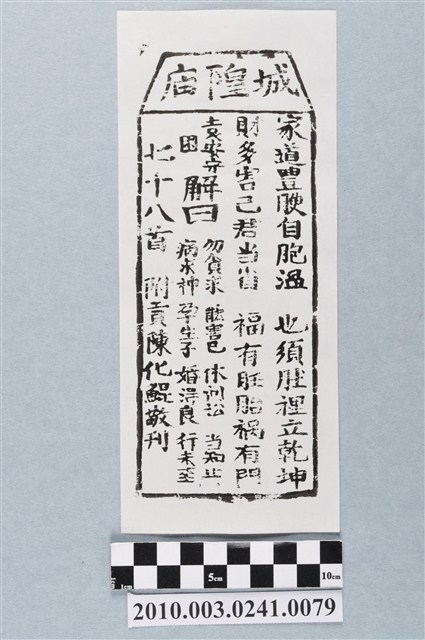 城隍庙
家道豐腴自胞溫　也須肚裡立乾坤
財多害己君当省　福有胚胎禍有門
袁安守困
解曰
勿貪求　能害己　休訓訟　当知止
病求神　孕生子　婚淂良　行未至
七十八首　附貢陳化鯤敬刊
1cm 5cm 10cm
2010.003.0241.0079